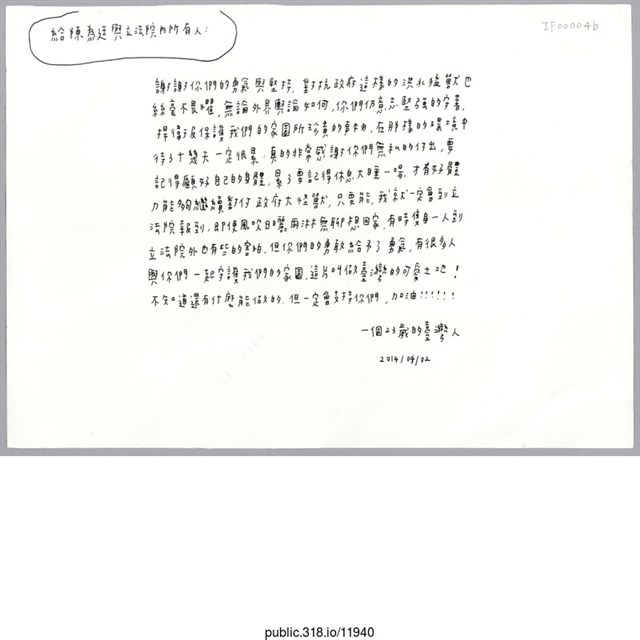 給陳為廷與立法院內所有人：
IF00004b
謝謝你們的勇氣與堅持，對抗政府這樣的洪水猛獸也
絲毫不畏懼，無論外界輿論如何，你們仍意志堅強的守著，
捍衛及保護我們的家園所珍貴的事物，在那樣的環境中
待了十幾天一定很累，真的非常感謝你們無私的付出，要
記得顧好自己的身體，累了要記得休息大睡一場，才有好體
力能夠繼續對付政府大怪獸，只要能，我就一定會到立
法院報到，即使風吹日曬雨淋無聊想回家，有時隻身一人到
立法院外也有些的害怕，但你們的勇敢給予了勇氣，有很多人
與你們一起守護我們的家園，這片叫做臺灣的可愛土地！
不知道還有什麼能做的，但一定會支持你們，加油!!!!!!
一個23歲的臺灣人
2014/04/02
public.318.io/11940